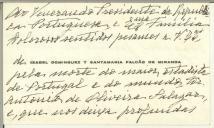 Ao Venerando Presidente da República
em Portuguesa, e sua família
dolorosos sentidos pesames a V. Ex.
de ISABEL DOMINGUEZ Y SANTAMARIA FALCÃO DE MIRANDA
pela morte do maior estadista
de Portugal e do mundo, Dr.
António de Oliveira Salazar,
e, que nos deixa profundas